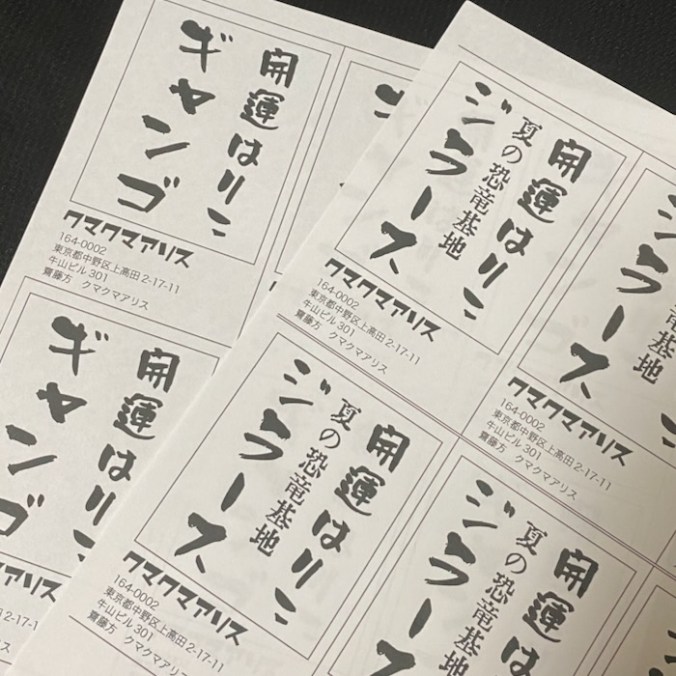 開運はりこ
ギャンゴ
クマクマアリス
164-0002
東京都中野区上高田2-17-11
牛山ビル301
齋藤方 クマクマアリス
開運はりこ
夏の恐竜基地
ジラース
クマクマアリス
164-0002
東京都中野区上高田2-17-11
牛山ビル301
齋藤方 クマクマアリス
竜基地
ジラース
クマクマアリス
164-0002
東京都中野区上高田2-17-11
牛山ビル301
齋藤方 クマクマアリス
開運はりこ
ギャンゴ
マアリス
2-17-11
開運はりこ
夏の恐竜基地
ジラース
クマクマアリス
164-0002
東京都中野区上高田2-17-11
牛山ビル301
齋藤方 クマクマアリス
開運はりこ
夏の恐竜基地
ジラース